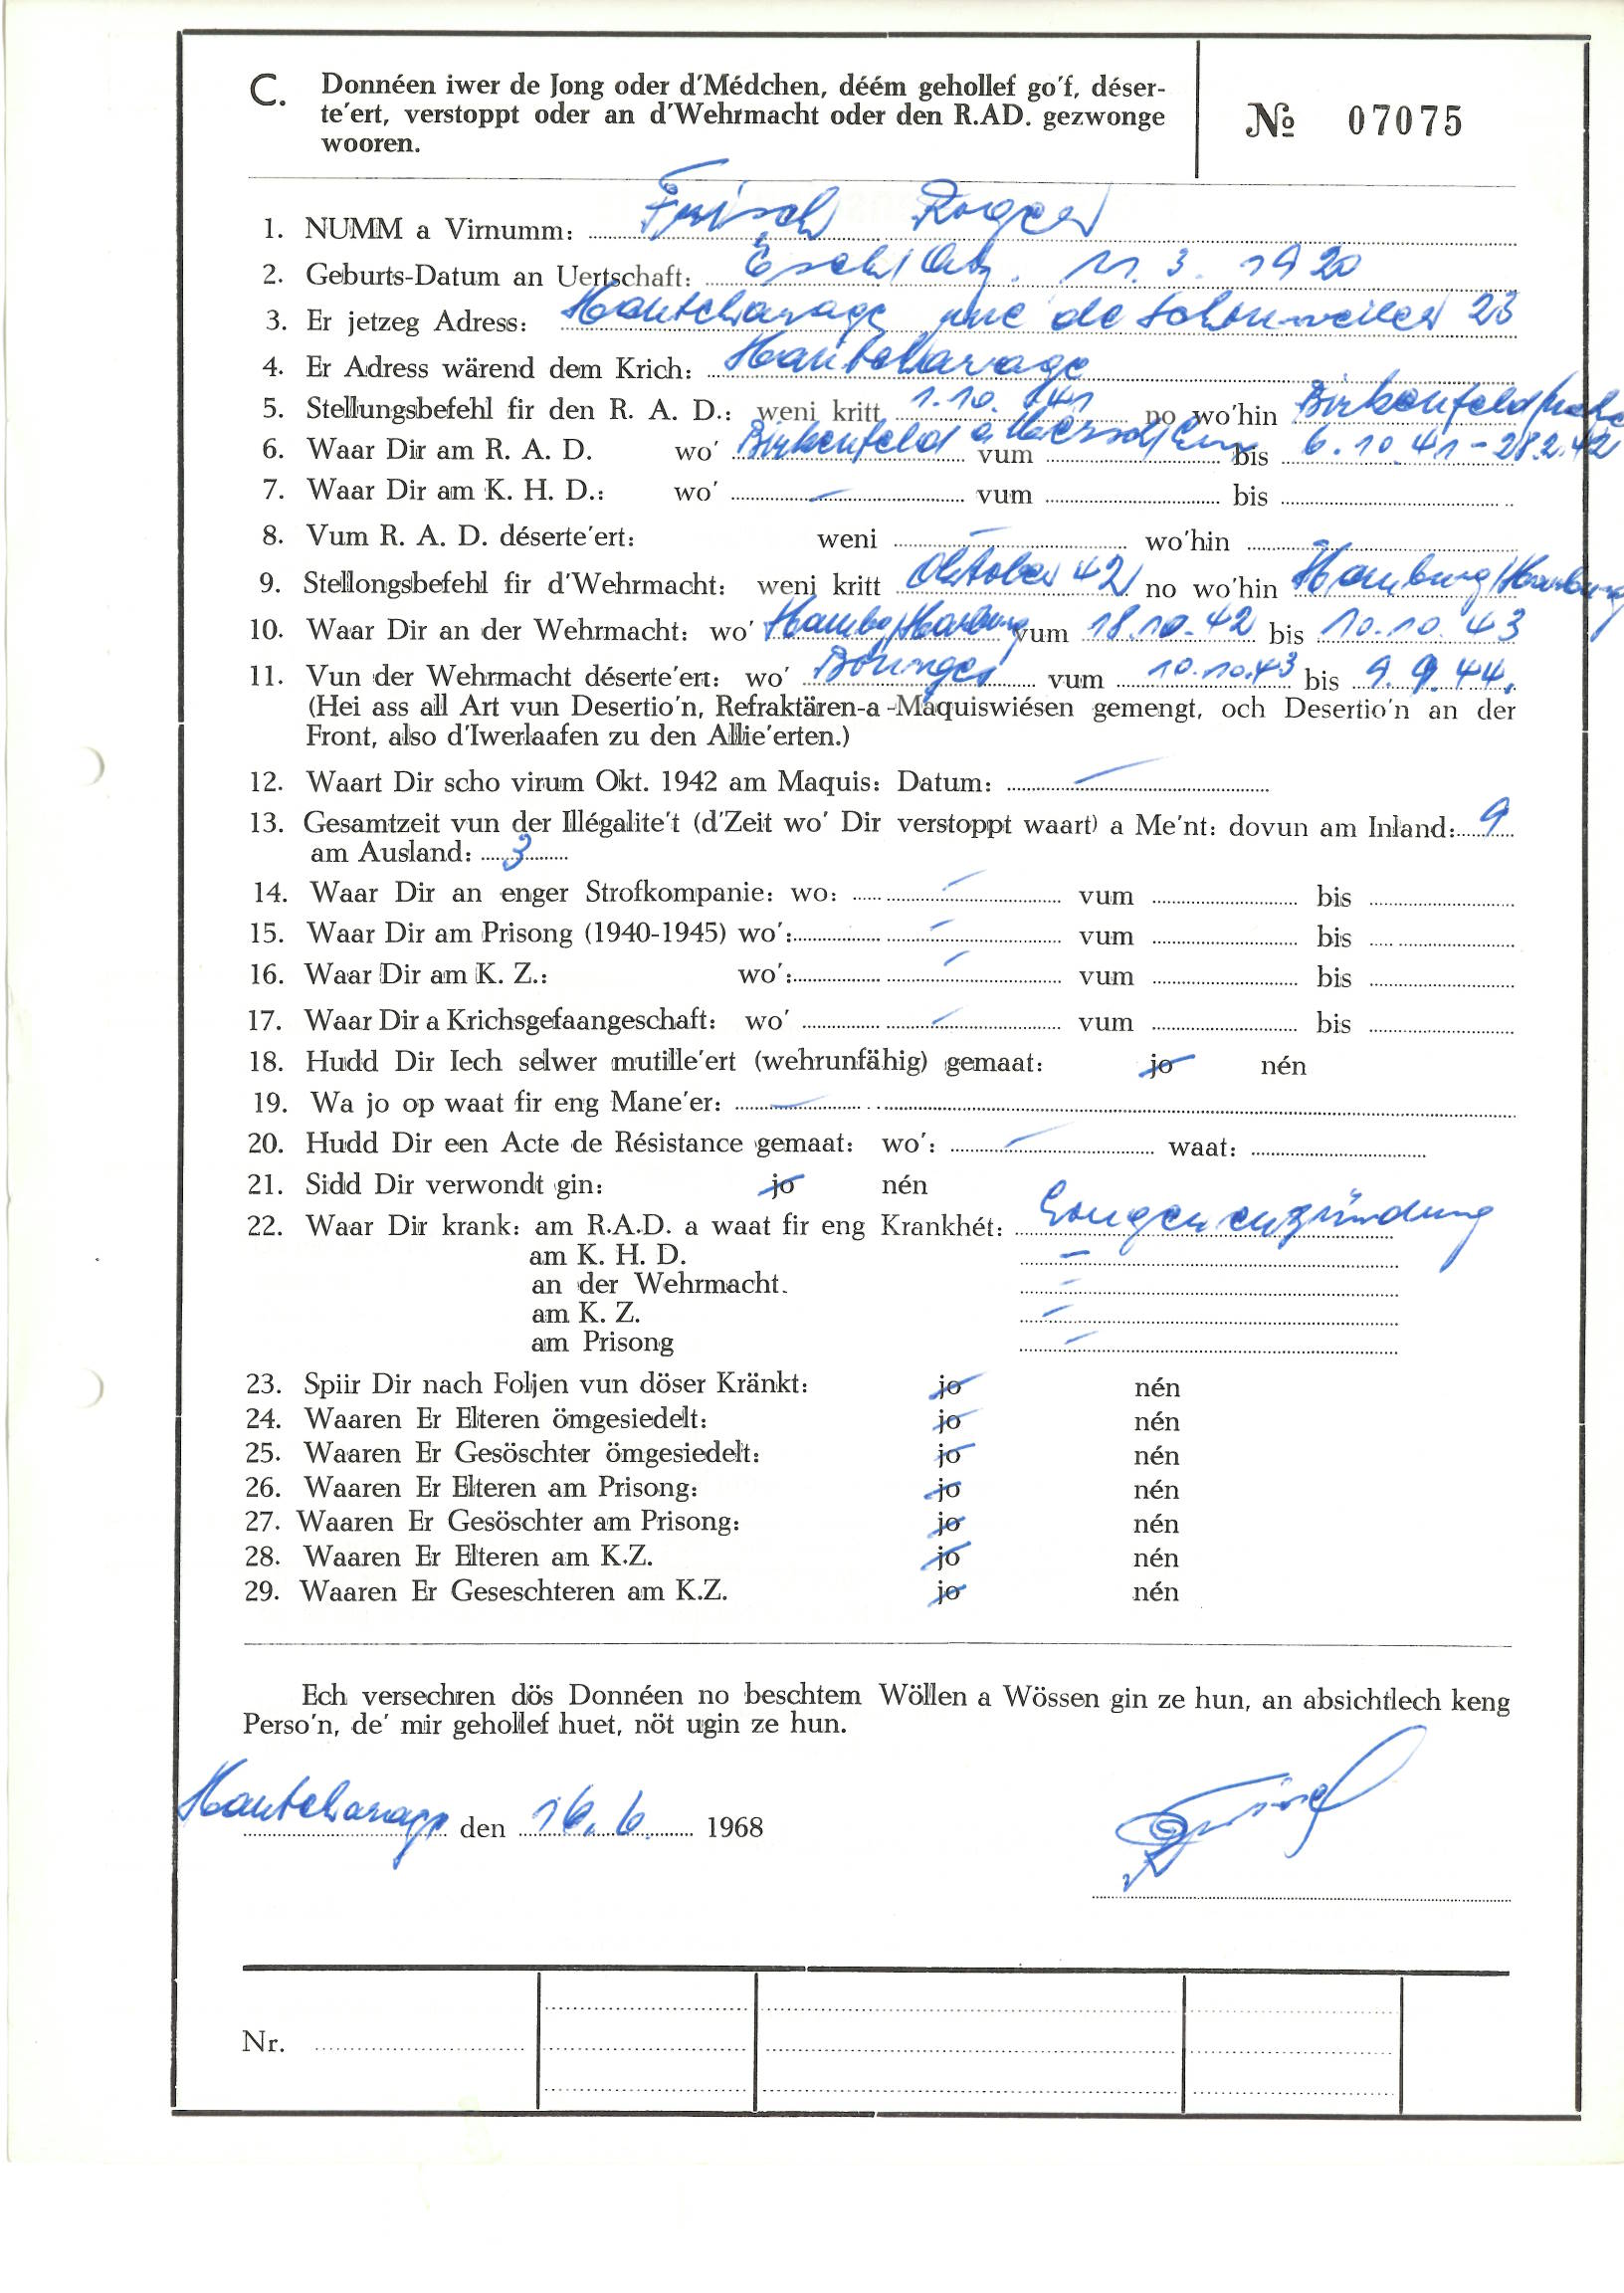 C. Donnéen iwer de Jong oder d'Médchen, déém gehollef go'f, déser-
te'ert, verstoppt oder an d'Wehrmacht oder den R.AD. gezwonge
wooren.
№ 07075
1. NUMM a Virnumm: Frisch Roger
2. Geburts-Datum an Uertschaft: Esch/Alz. 11. 3. 1920
3. Er jetzeg Adress: Hautcharage rue de Schouweiler 23
4. Er Adress wärend dem Krich: Hautcharage
5. Stellungsbefehl fir den R. A. D.: weni kritt 1.10. 41 no wo'hin Birkenfeld/Nahe
6. Waar Dir am R. A. D. wo' Birkenfeld vum bis 6.10.41-28.2.42
7. Waar Dir am K. H. D.: wo' - vum bis
8. Vum R. A. D. déserte'ert: weni - wo'hin
9. Stellongsbefehl fir d'Wehrmacht: weni kritt Oktober 42 no wo'hin Hamburg/Harburg
10. Waar Dir an der Wehrmacht: wo' Hambg/Harburg vum 18.10.42 bis 10.10.43
11. Vun der Wehrmacht déserte'ert: wo' vum 10.10.43 bis 9.9.44.
(Hei ass all Art vun Desertio'n, Refraktären-a-Maquiswiésen gemengt, och Desertio'n an der
Front, also d'Iwerlaafen zu den Allie'erten.)
12. Waart Dir scho virum Okt. 1942 am Maquis: Datum: -
13. Gesamtzeit vun der Illégalite't (d'Zeit wo' Dir verstoppt waart) a Me'nt: dovun am Inland: 9
am Ausland: 3
14. Waar Dir an enger Strofkompanie: wo: - vum bis
15. Waar Dir am Prisong (1940-1945) wo': - vum bis
16. Waar Dir am K. Z.: wo': - vum bis
17. Waar Dir a Krichsgefaangeschaft: wo' - vum bis
18. Hudd Dir Iech selwer mutille'ert (wehrunfähig) gemaat: jo nén
19. Wa jo op waat fir eng Mane'er: -
20. Hudd Dir een Acte de Résistance gemaat: wo': - waat:
21. Sidd Dir verwondt gin: jo nén
22. Waar Dir krank: am R.A.D. a waat fir eng Krankhét: Lungenentzündung
am K. H. D. -
an der Wehrmacht. -
am K. Z. -
am Prisong -
23. Spiir Dir nach Foljen vun döser Kränkt: jo nén
24. Waaren Er Elteren ömgesiedelt: jo nén
25. Waaren Er Gesöschter ömgesiedelt: jo nén
26. Waaren Er Elteren am Prisong: jo nén
27. Waaren Er Gesöschter am Prisong: jo nén
28. Waaren Er Elteren am K.Z. jo nén
29. Waaren Er Geseschteren am K.Z. jo nén
Ech versechren dös Donnéen no beschtem Wöllen a Wössen gin ze hun, an absichtlech keng
Perso'n, de' mir gehollef huet, nöt ugin ze hun.
Hautcharage den 16. 6. 1968
Frisch
Nr.